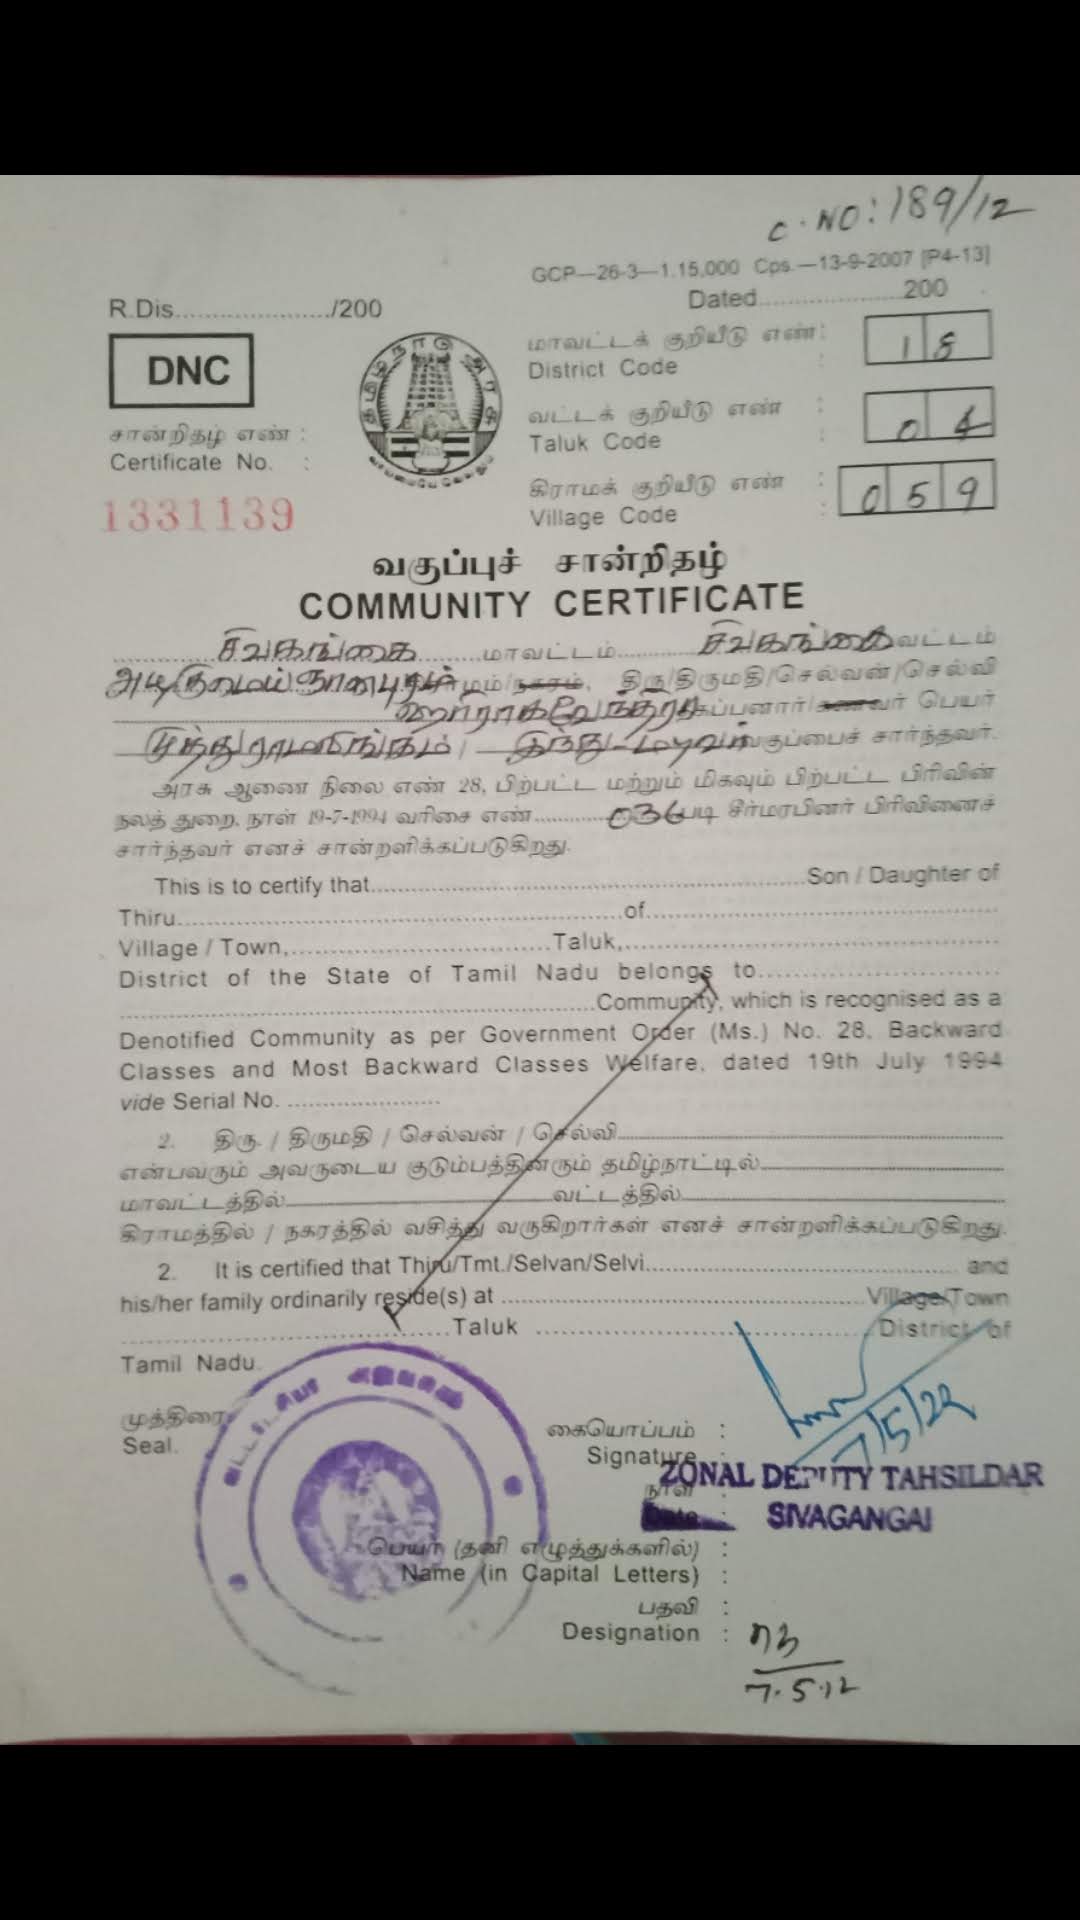 C. NO: 189/12
GCP—26-3—1.15,000 Cps.—13-9-2007 [P4-13]
R.Dis...................../200
Dated....................200
DNC
தமிழ்நாடு அரசு
வாய்மையே வெல்லும்
மாவட்டக் குறியீடு எண் :
District Code :
18
வட்டக் குறியீடு எண் :
Taluk Code :
04
சான்றிதழ் எண் :
Certificate No. :
கிராமக் குறியீடு எண் :
Village Code :
059
1331139
வகுப்புச் சான்றிதழ்
COMMUNITY CERTIFICATE
சிவகங்கை மாவட்டம் சிவகங்கை வட்டம்
/நகரம், திரு/திருமதி/செல்வன்/செல்வி
தகப்பனார்/கணவர் பெயர்
முத்துராமலிங்கம் இந்து- வகுப்பைச் சார்ந்தவர்.
அரசு ஆணை நிலை எண் 28, பிற்பட்ட மற்றும் மிகவும் பிற்பட்ட பிரிவின்
நலத் துறை, நாள் 19-7-1994 வரிசை எண் 036 படி சீர்மரபினர் பிரிவினைச்
சார்ந்தவர் எனச் சான்றளிக்கப்படுகிறது.
This is to certify that..........Son / Daughter of
Thiru..........of..........
Village / Town,..........Taluk,..........
District of the State of Tamil Nadu belongs to..........
..........Community, which is recognised as a
Denotified Community as per Government Order (Ms.) No. 28, Backward
Classes and Most Backward Classes Welfare, dated 19th July 1994
vide Serial No. ..........
2. திரு. / திருமதி / செல்வன் / செல்வி..........
என்பவரும் அவருடைய குடும்பத்தினரும் தமிழ்நாட்டில்..........
மாவட்டத்தில்..........வட்டத்தில்..........
கிராமத்தில் / நகரத்தில் வசித்து வருகிறார்கள் எனச் சான்றளிக்கப்படுகிறது.
2. It is certified that Thiru/Tmt./Selvan/Selvi.......... and
his/her family ordinarily reside(s) at ..........Village/Town
..........Taluk ..........District of
Tamil Nadu.
முத்திரை
Seal.
கையொப்பம் :
Signature :
7/5/22
ZONAL DEPUTY TAHSILDAR
நாள் :
Date :
SIVAGANGAI
பெயர் (தனி எழுத்துக்களில்) :
Name (in Capital Letters) :
பதவி :
Designation :
7.5.12